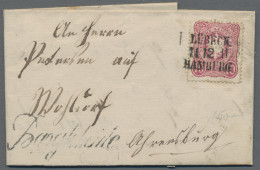 An Herrn
Petersen auf
Wohldorf
Ahrensburg
LÜBECK
HAMBURG